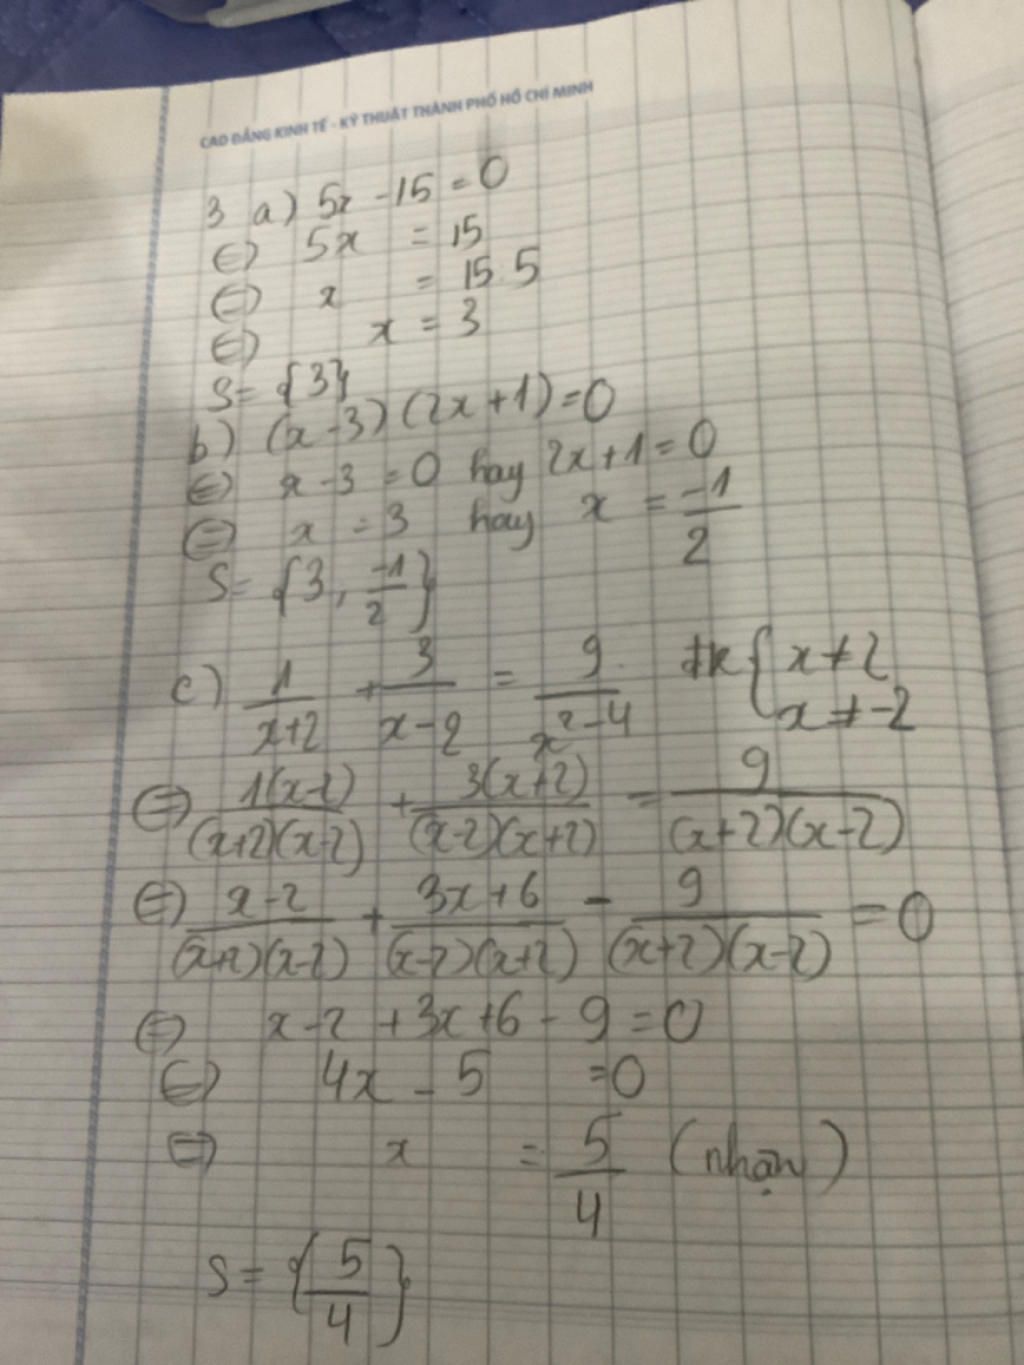 CAO ĐẲNG KINH TẾ - KỸ THUẬT THÀNH PHỐ HỒ CHÍ MINH
3 a) 5x - 15 = 0
⇔ 5x = 15
⇔ x = 15 5
⇔ x = 3
S = {3}
b) (x-3)(2x+1)=0
⇔ x-3 = 0 hay 2x+1=0
⇔ x = 3 hay x = -1/2
S = {3, -1/2}
c) 1/(x+2) + 3/(x-2) = 9/(x²-4) đk { x ≠ 2
x ≠ -2
⇔ 1(x-2)/(x+2)(x-2) + 3(x+2)/(x-2)(x+2) = 9/(x+2)(x-2)
⇔ x-2/(x+2)(x-2) + 3x+6/(x-2)(x+2) - 9/(x+2)(x-2) = 0
⇔ x-2+3x+6-9=0
⇔ 4x - 5 = 0
⇔ x = 5/4 (nhận)
S = {5/4}